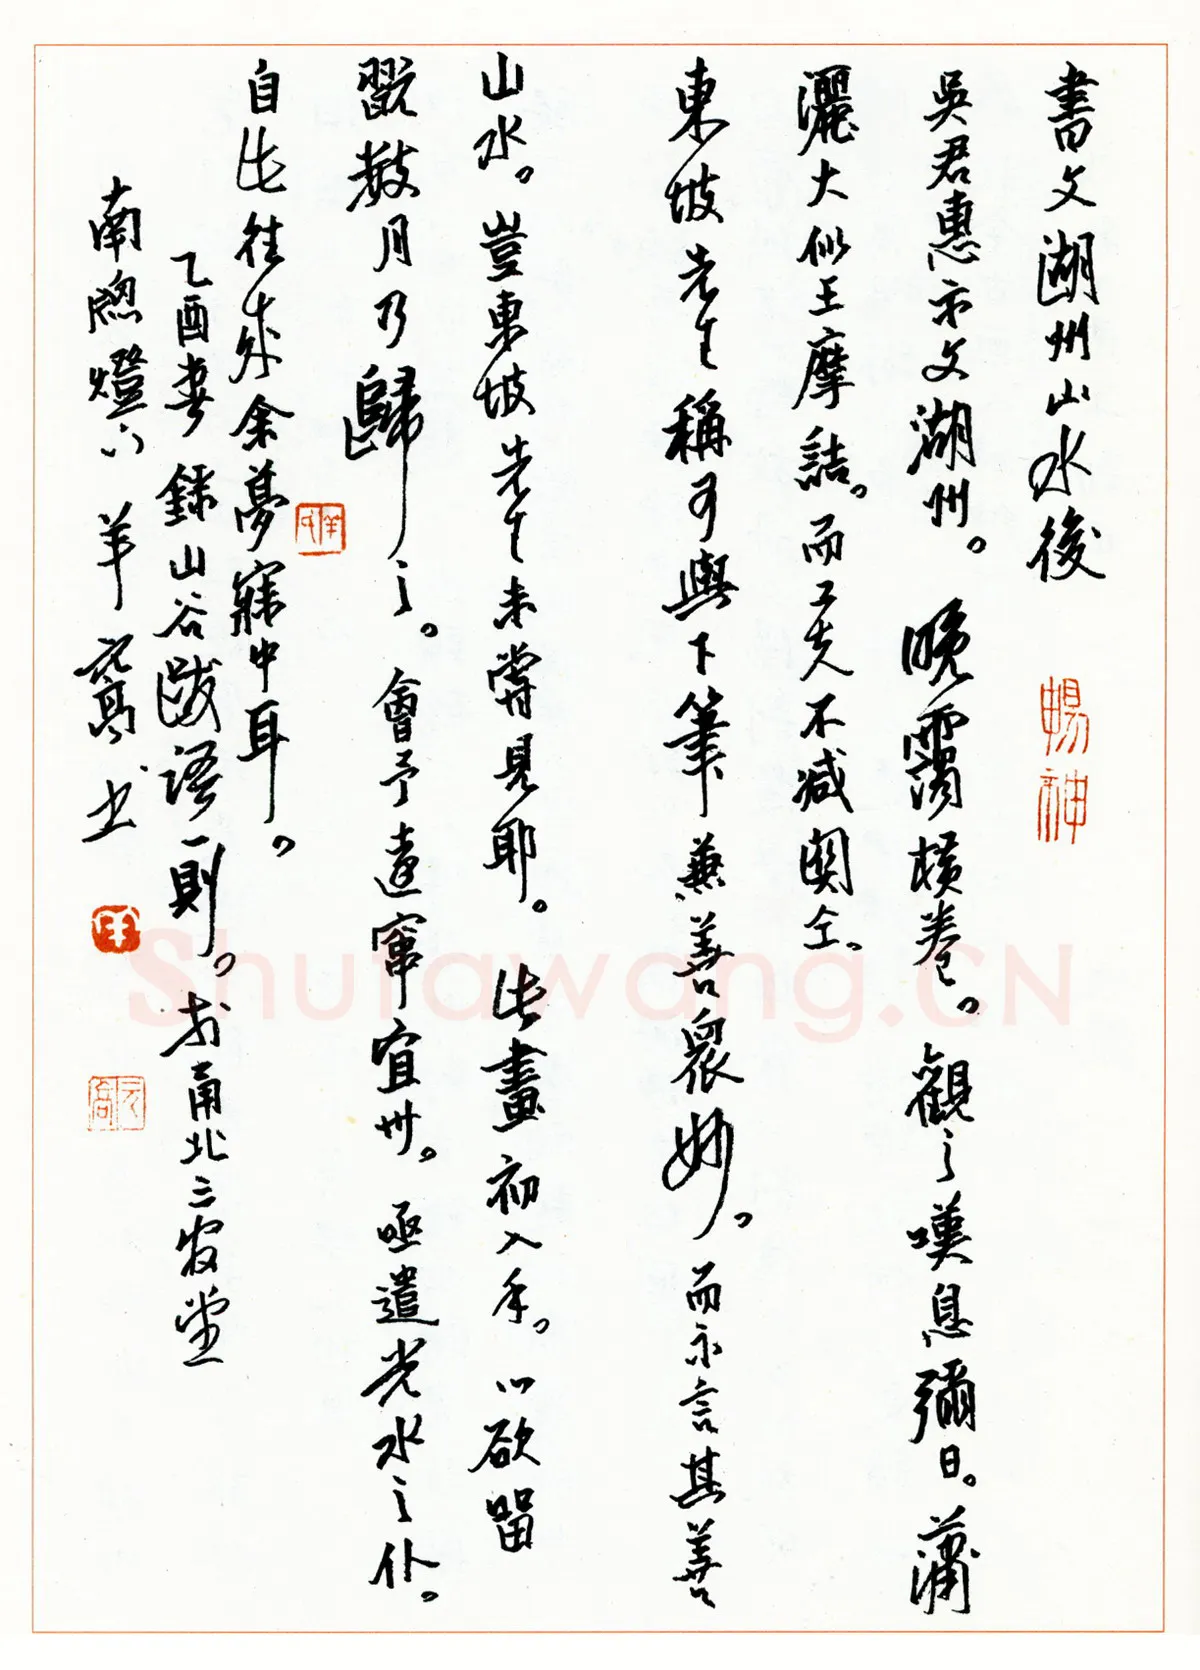 書文湖州山水後
暢神
吳君惠示文湖州。晚靄橫卷。觀之嘆息彌日。蕭
灑大似王摩詰。而工夫不減關仝。
東坡先生稱可與下筆兼善眾妙。而不言其善
山水。豈東坡先生未嘗見耶。此畫初入手。心欲留
翫數月乃歸之。會予遠竄宜州。亟遣光水之仆。
自此往來余夢寐中耳。
乙酉春錄山谷跋語一則。於甬北堂
南窗燈下 羊书
Shufawang.CN